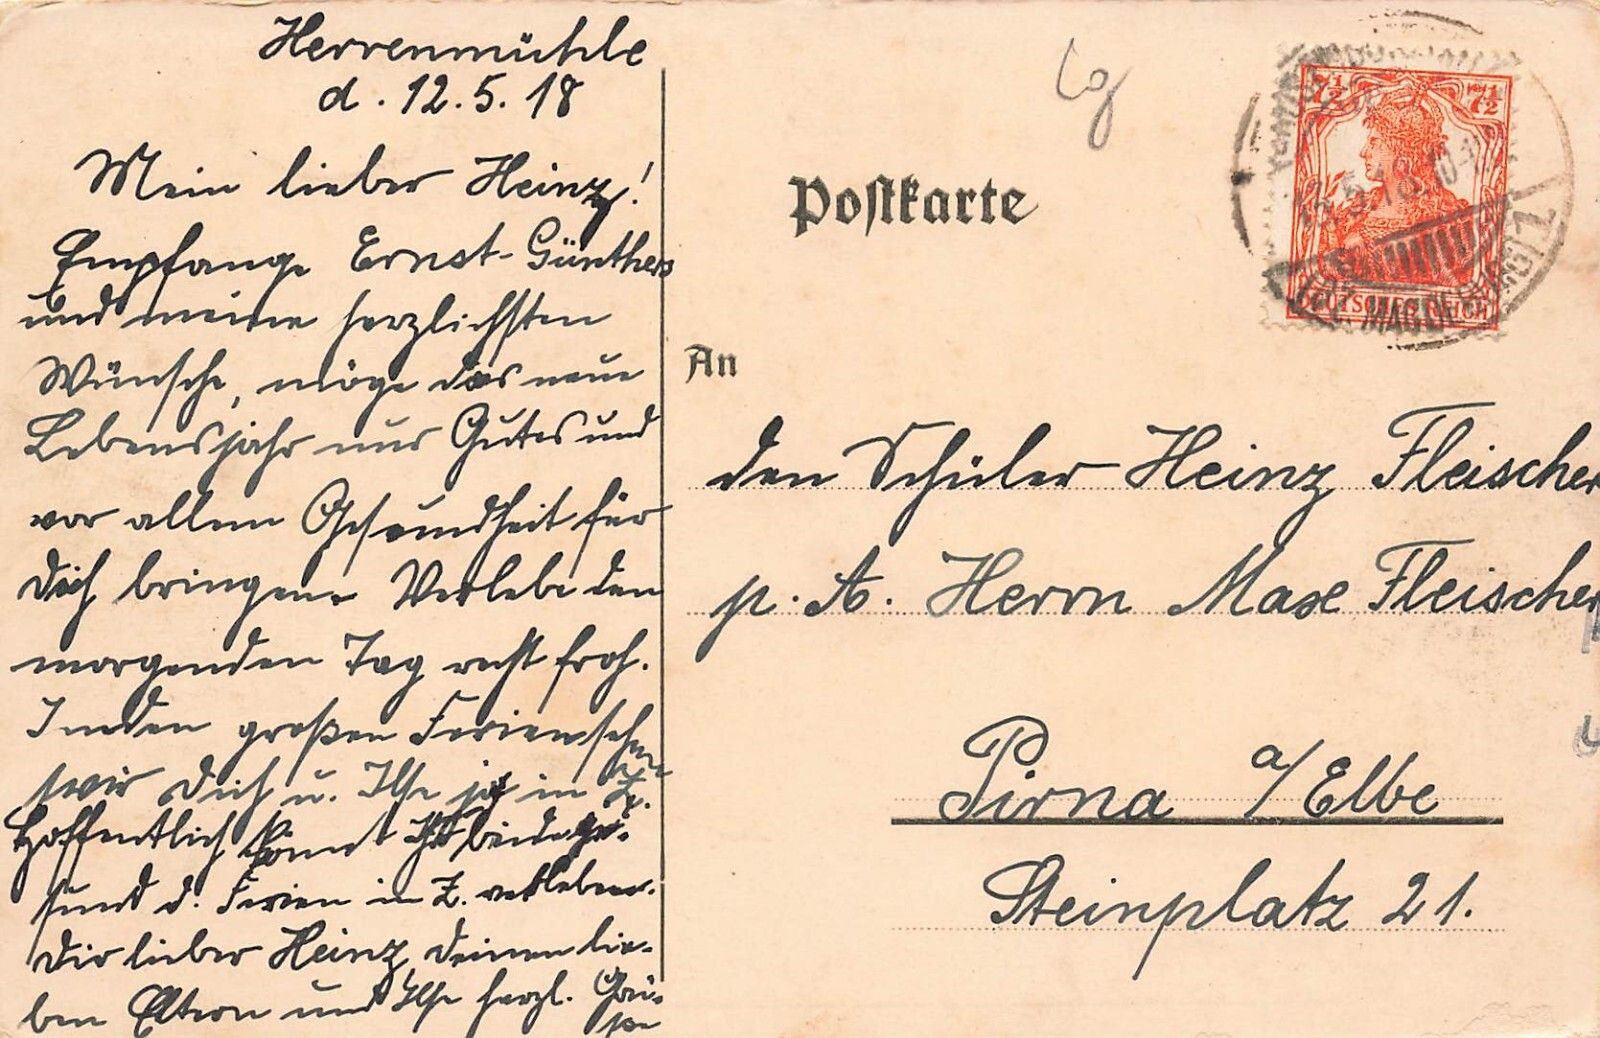 Herrenmühle
d. 12.5.18
Mein lieber Heinz!
Empfange Ernst-Günthers
und meine herzlichsten
Wünsche, möge das neue
Lebensjahr nur Gutes und
vor allem Gesundheit für
Dich bringen. Verlebe den
morgenden Tag recht froh.
In den großen Ferien sehen
wir Dich u. Ilse ja in Z.
Hoffentlich könnt Ihr beide ge-
sund d. Ferien in Z. verleben.
Dir lieber Heinz, Deinen lie-
ben Eltern und Ilse herzl. Grü-
ße
Postkarte
7½ 7½
DEUTSCHES REICH
MAGDEBURG
An
den Schüler Heinz Fleischer
p. A. Herrn Max Fleischer
Pirna a/Elbe
Steinplatz 21.